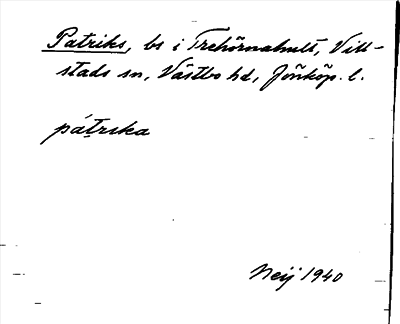 Patriks, bs i Trehörnahult, Vill-
stads sn, Västbo hd, Jönköp. l.
pátrska
Neij 1940